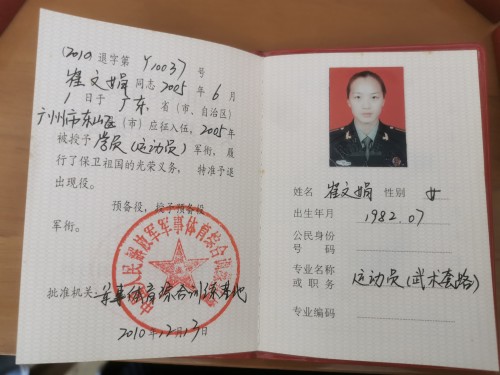 (2010)退字第Y10037号
崔文娟同志2005年6月
1日于广东省(市、自治区)
广州市东山区(市)应征入伍,2005年
被授予学员(运动员)军衔,履
行了保卫祖国的光荣义务,特准予退
出现役。
预备役,授予预备役
军衔。
批准机关军事体育综合训练基地
2010年12月13日
中国人民解放军军事体育综合训练基地
姓名 崔文娟 性别 女
出生年月 1982.07
公民身份
号码
专业名称
或职务 运动员(武术套路)
专业编码